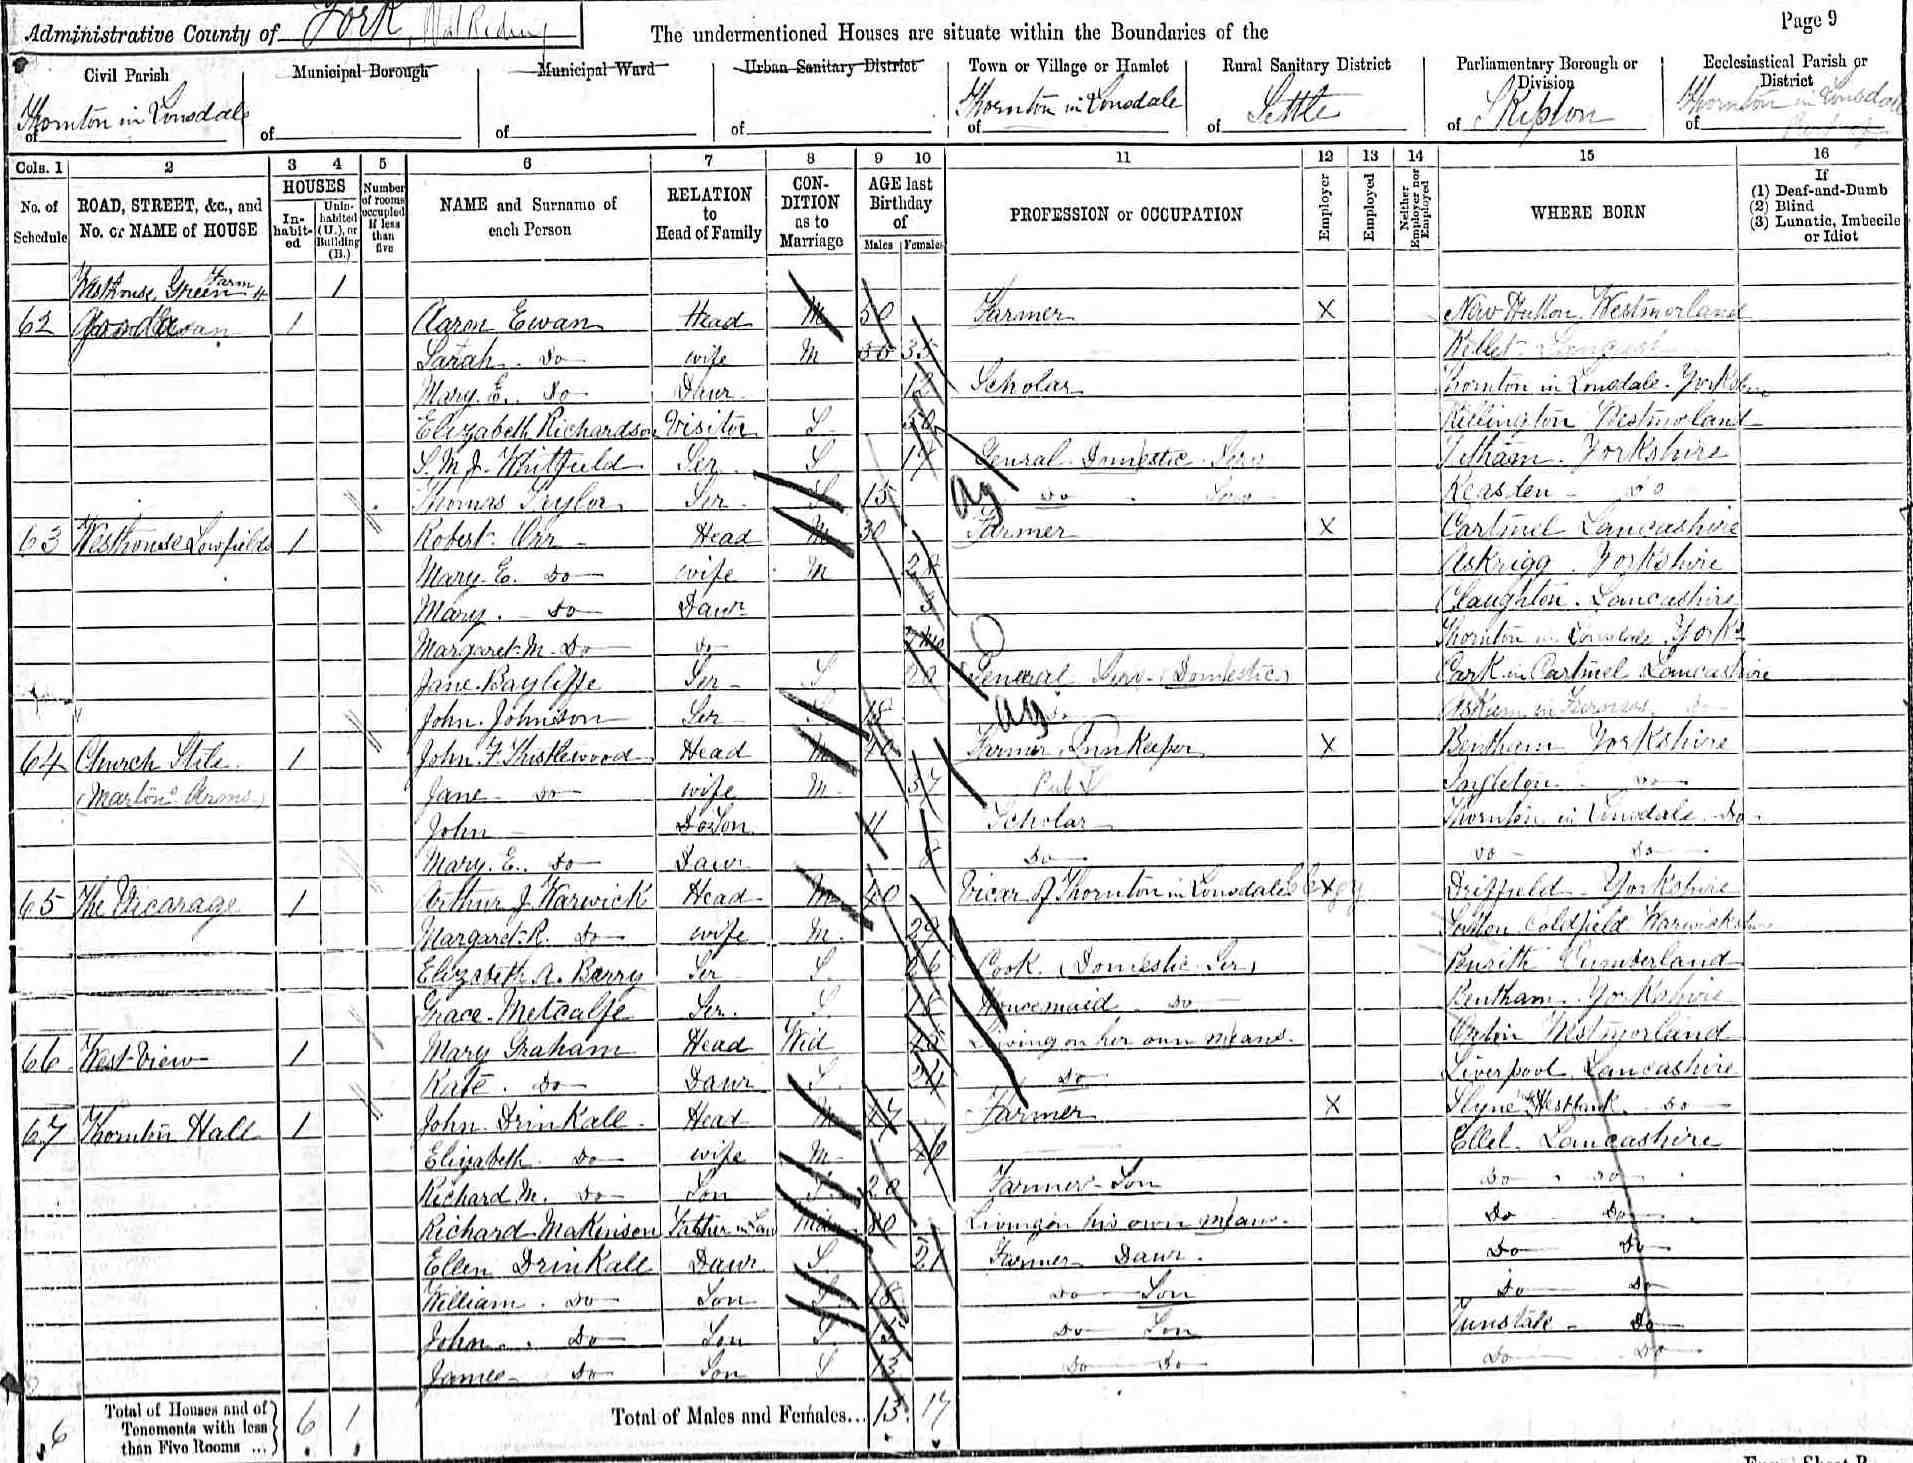 Administrative County of York, West Riding
The undermentioned Houses are situate within the Boundaries of the
Page 9
Civil Parish
Municipal Borough
Municipal Ward
Urban Sanitary District
Town or Village or Hamlet
Rural Sanitary District
Parliamentary Borough or Division
Ecclesiastical Parish or District
of Thornton in Lonsdale
of
of
of
of Thornton in Lonsdale
of Settle
of Skipton
of Thornton in Lonsdale
Cols. 1 2 3 4 5 6 7 8 9 10 11 12 13 14 15 16
No. of Schedule
ROAD, STREET, &c., and No. or NAME of HOUSE
HOUSES
In-habit-ed
Unin-habited (U.), or Building (B.)
Number of rooms occupied if less than five
NAME and Surname of each Person
RELATION to Head of Family
CON-DITION as to Marriage
AGE last Birthday of
Males Females
PROFESSION or OCCUPATION
Employer
Employed
Neither Employer nor Employed
WHERE BORN
If
(1) Deaf-and-Dumb
(2) Blind
(3) Lunatic, Imbecile or Idiot
Westhouse, Green Farm 1
62 1 Aaron Ewan Head M 50 Farmer X New Hutton Westmorland
Sarah Do wife M 35 Kellet
Mary. E. Do Dawr 12 Scholar Thornton in Lonsdale. Yorkshire
Elizabeth Richardson Visitor S 50 Killington Westmoland
S. M. J. Whitfield Ser S 17 General Domestic Serv Tatham. Yorkshire
Thomas Taylor Ser S 15 Do Serv Keasden Do
Ag
63 Westhouse Lowfields 1 Robert Orr Head M 30 Farmer X Cartmel Lancashire
Mary. E. Do wife M 28 Askrigg. Yorkshire
Mary. Do Dawr 3 Claughton. Lancashire
Margaret. M. Do Do 7mo Thornton in Lonsdale Yorks
Jane Bayliffe Ser S 20 General Serv (Domestic) Cark in Cartmel Lancashire
John. Johnson Ser S 18 Do Askam in Furness. Do
Ag
64 Church Stile. 1 John. F. Thistlewood Head M 40 Farmer Innkeeper X Bentham Yorkshire
(Marton Arms) Jane Do wife M 37 Pub Ingleton Do
John Do Son 11 Scholar Thornton in Lonsdale Do
Mary. E. Do Dawr 8 Do Do Do
65 The Vicarage 1 Arthur J. Warwick Head M 40 Vicar of Thornton in Lonsdale Clergy X Driffield Yorkshire
Margaret. R. Do wife M 29 Sutton Coldfield Warwickshire
Elizabeth A. Barry Ser S. 26 Cook. (Domestic Ser) Penrith Cumberland
Grace. Metcalfe Ser. S. 18 Housemaid Do Bentham. Yorkshire
66 West View 1 Mary Graham Head Wid Living on her own means. Orton Westmorland
Kate. Do Dawr S. 24 Do Liverpool Lancashire
67 Thornton Hall 1 John. Drinkall. Head M 47 Farmer X Slyne Hestbank Do
Elizabeth. Do wife M 46 Ellel. Lancashire
Richard M. Do Son S. 20 Farmer Son Do Do
Richard Makinson Father in Law Widr 80 Living on his own means. Do Do
Ellen Drinkall Dawr S. 21 Farmer Dawr. Do Do
William. Do Son S. 18 Do Son Do Do
John. Do Son S 15 Do Son Tunstale Do
James Do Son S 13 Do Do Do Do
6 Total of Houses and of Tenements with less than Five Rooms ... 6 1 Total of Males and Females... 13 17